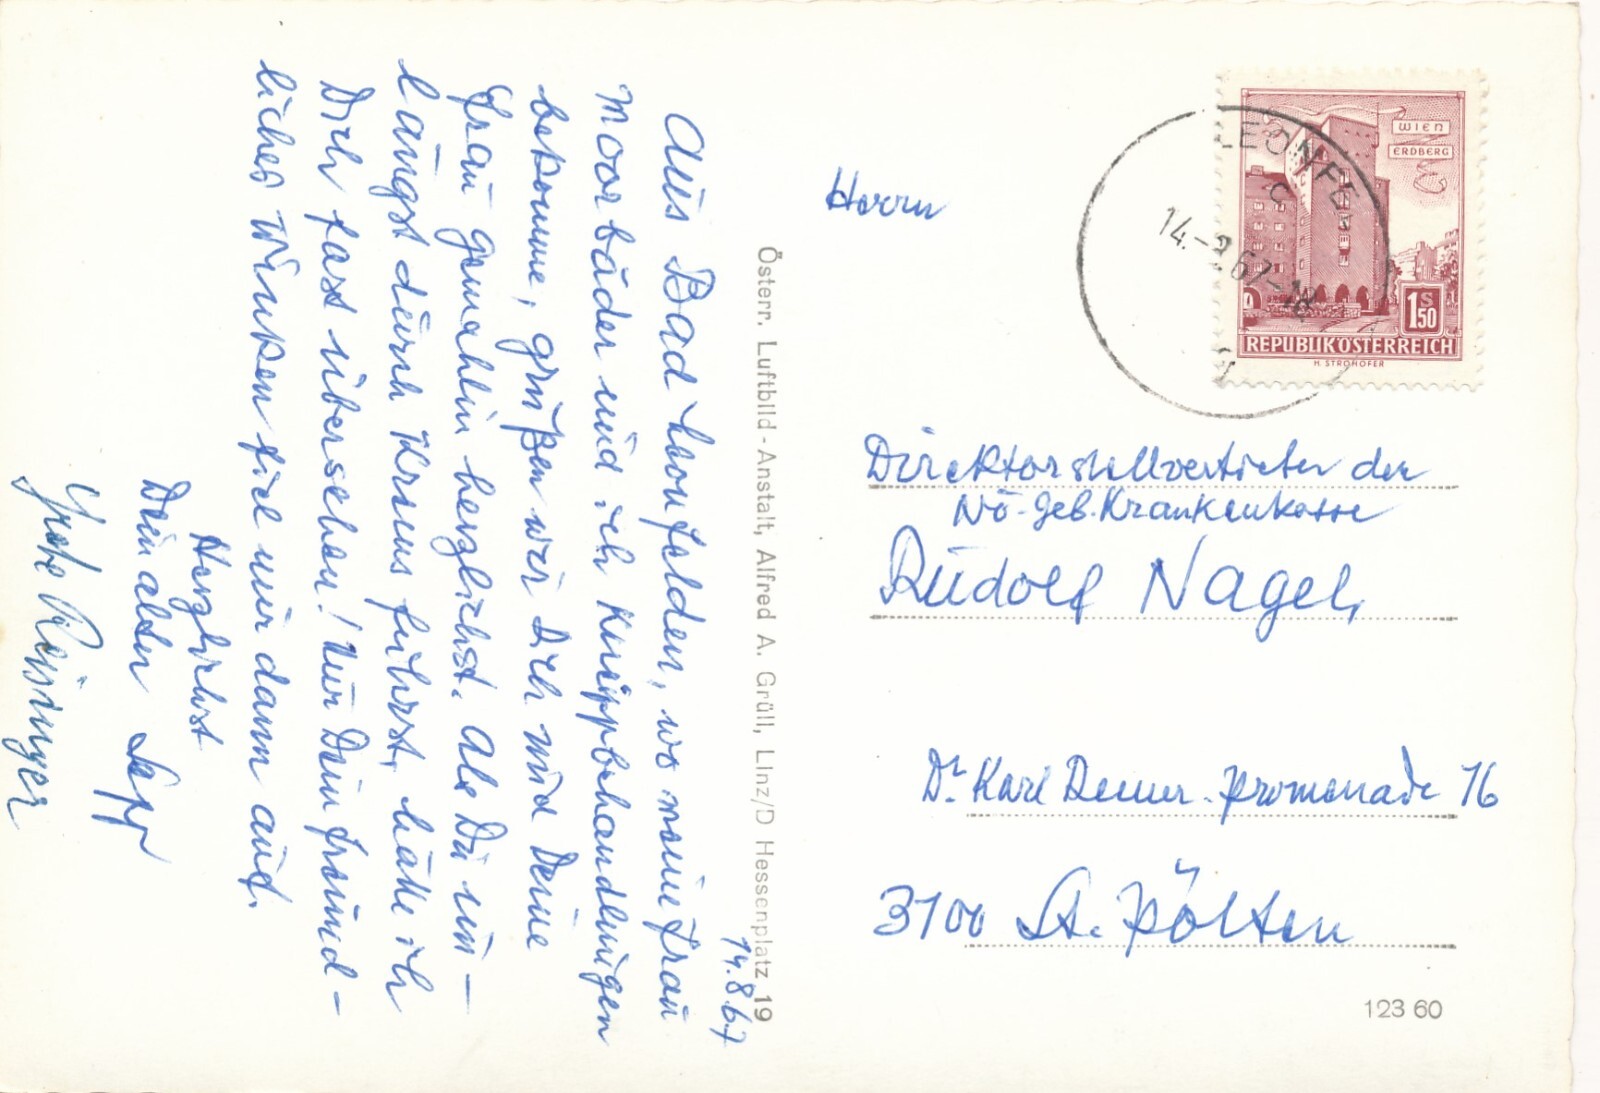 14.8.67
Aus Bad Leonfelden, wo meine Frau
Moorbäder und ich Kneippbehandlungen
bekomme, grüßen wir Dich und Deine
Frau Gemahlin herzlichst. Als Du un-
längst durch Krems fuhrst, hätte ich
Dich fast übersehen! Nur Dein freund-
liches Winken fiel mir dann auf.
Herzlichst
Dein alter Sepp
Reisinger
Österr. Luftbild-Anstalt, Alfred A. Grüll, Linz/D Hessenplatz 19
LEONFE
14.-8.67-18
WIEN
ERDBERG
1S50
REPUBLIK ÖSTERREICH
H. STROHOFER
Herrn
Direktorstellvertreter der
Nö-Geb. Krankenkasse
Rudolf Nagel,
Dr Karl Renner-Promenade 16
3100 St. Pölten
123 60